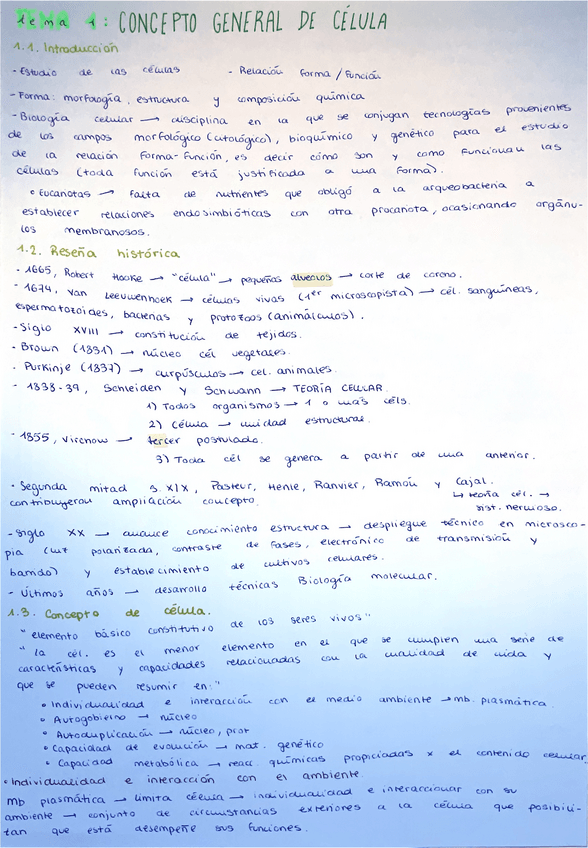 Tema 1: CONCEPTO GENERAL DE CÉLULA
1.1. Introducción
- Estudio de las células - Relación forma/función
- Forma: morfología, estructura y composición química
- Biología celular → disciplina en la que se conjugan tecnologías provenientes
de los campos morfológico (citológico), bioquímico y genético para el estudio
de la relación forma-función, es decir cómo son y como funcionan las
células (toda función está justificada a una forma).
• Eucariotas → falta de nutrientes que obligó a la arqueobacteria a
establecer relaciones endosimbióticas con otra procariota, ocasionando orgánu-
los membranosos.
1.2. Reseña histórica
- 1665, Robert Hooke → "célula" → pequeños alveolos → corte de corcho.
- 1674, Van Leeuwenhoek → células vivas (1er microscopista) → cél. sanguíneas,
espermatozoides, bacterias y protozoos (animálculos).
- Siglo XVIII → constitución de tejidos.
- Brown (1831) → núcleo cél vegetales.
- Purkinje (1837) → corpúsculos → cel. animales.
- 1838-39, Schleiden y Schwann → TEORÍA CELULAR.
1) Todos organismos → 1 o más céls.
2) Célula → unidad estructural.
- 1855, Virchow → tercer postulado.
3) Toda cél se genera a partir de una anterior.
• Segunda mitad s. XIX, Pasteur, Henle, Ranvier, Ramón y Cajal.
contribuyeron ampliación concepto. ↳ teoría cél. →
sist. nervioso.
- Siglo XX → avance conocimiento estructura → despliegue técnico en microsco-
pia (luz polarizada, contraste de fases, electrónico de transmisión y
barrido) y establecimiento de cultivos celulares.
- Últimos años → desarrollo técnicas Biología molecular.
1.3. Concepto de célula.
"elemento básico constitutivo de los seres vivos"
"la cél. es el menor elemento en el que se cumplen una serie de
características y capacidades relacionadas con la cualidad de vida y
que se pueden resumir en:"
• Individualidad e interacción con el medio ambiente → mb. plasmática.
• Autogobierno → núcleo
• Autoduplicación → núcleo, prot
• Capacidad de evolución → mat. genético
• Capacidad metabólica → reacc. químicas propiciadas x el contenido celular
• Individualidad e interacción con el ambiente.
mb plasmática → limita célula → individualidad e interaccionar con su
ambiente → conjunto de circunstancias exteriores a la célula que posibili-
tan que está desempeñe sus funciones.